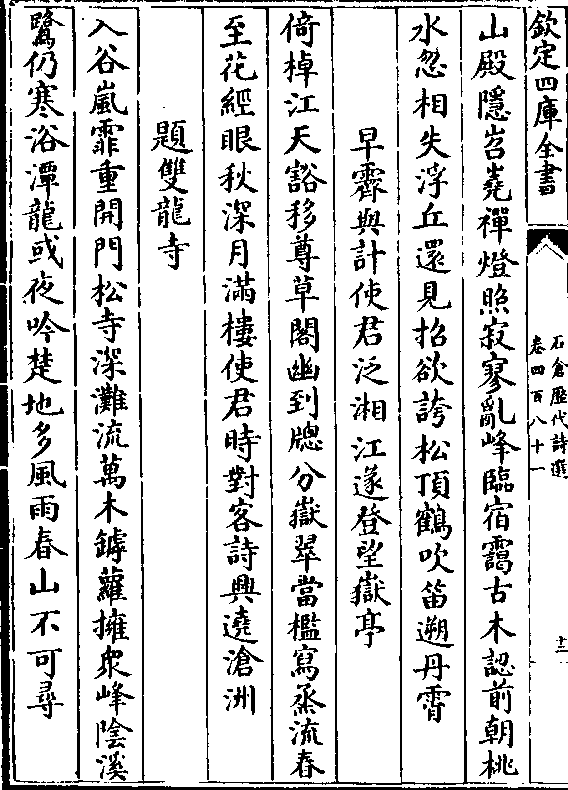 欽定四庫全書
石倉歷代詩選
卷四百八十一
十二
山殿隱岧嶤禪燈照寂寥亂峰臨宿靄古木認前朝桃
水忽相失浮丘還見招欲誇松頂鶴吹笛遡丹霄
早霽與計使君泛湘江遂登望嶽亭
倚棹江天豁移尊草閣幽到牕分嶽翠當檻寫蒸流春
至花經眼秋深月滿樓使君時對客詩興遶滄洲
題雙龍寺
入谷嵐霏重開門松寺深灘流萬木罅蘿擁衆峰陰溪
鷺仍寒浴潭龍或夜吟楚地多風雨春山不可尋